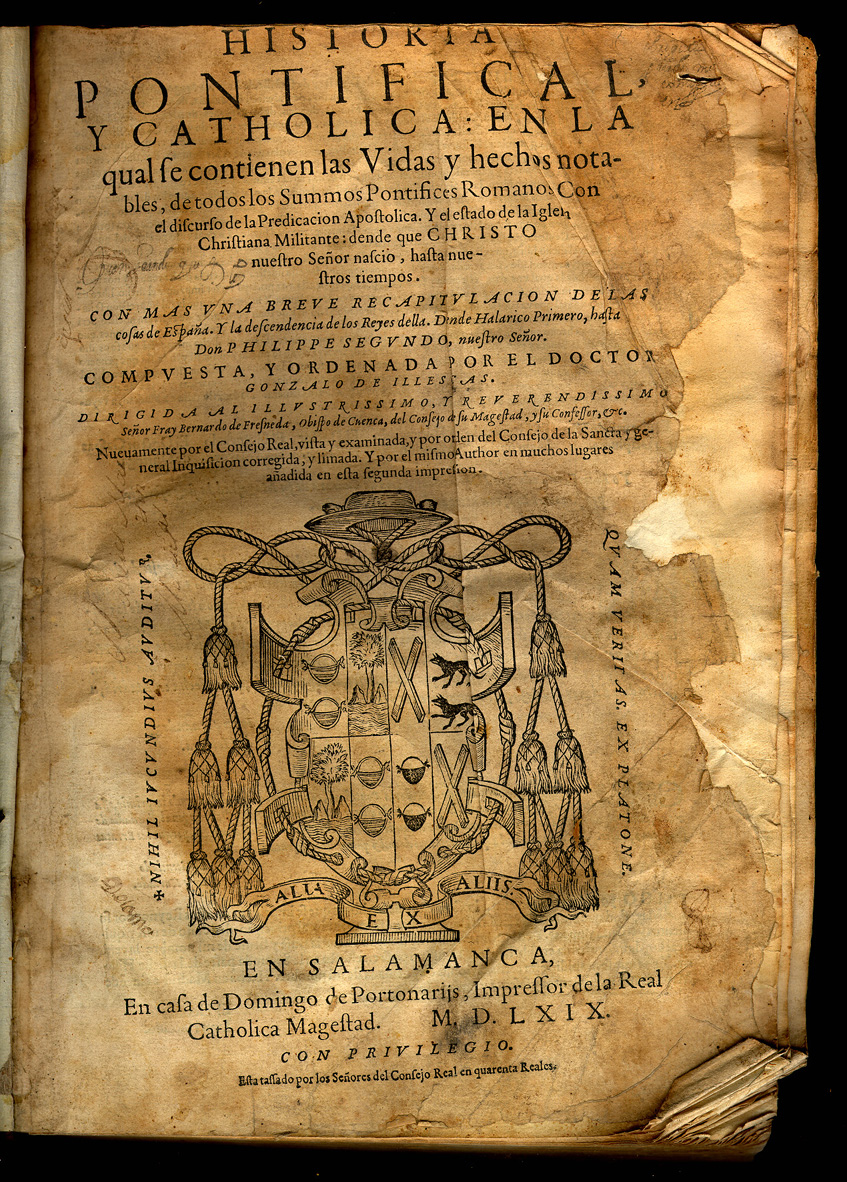 HISTORIA
PONTIFICAL,
Y CATHOLICA: EN LA
qual ſe contienen las Vidas y hechos nota-
bles, de todos los Summos Pontifices Romanos Con
el diſcurſo de la Predicacion Apoſtolica. Y el eſtado de la
Chriſtiana Militante: dende que CHRISTO
nueſtro Señor naſcio, haſta nue-
ſtros tiempos.
CON MAS VNA BREVE RECAPITVLACION DE LAS
coſas de Eſpaña. Y la deſcendencia de los Reyes della. Dende Halarico Primero, haſta
Don PHILIPPE SEGVNDO, nueſtro Señor.
COMPVESTA, Y ORDENADA POR EL DOCTOR
GONZALO DE ILLESCAS.
DIRIGIDA AL ILLVSTRISSIMO, Y REVERENDISSIMO
Señor Fray Bernardo de Freſneda, Obiſpo de Cuenca, del Conſejo de ſu Mageſtad, y ſu Confeſſor, &c.
Nueuamente por el Conſejo Real, viſta y examinada, y por orden del Conſejo de la Sancta y ge-
neral Inquiſicion corregida, y limada. Y por el miſmo Author en muchos lugares
añadida en eſta ſegunda impreſion.
✠ NIHIL IVCVNDIVS AVDITVR,
QVAM VERITAS. EX PLATONE.
ALIA EX ALIIS.
EN SALAMANCA,
En caſa de Domingo de Portonarijs, Impreſſor de la Real
Catholica Mageſtad. M. D. LXIX.
CON PRIVILEGIO.
Eſta taſſado por los Señores del Conſejo Real en quarenta Reales.